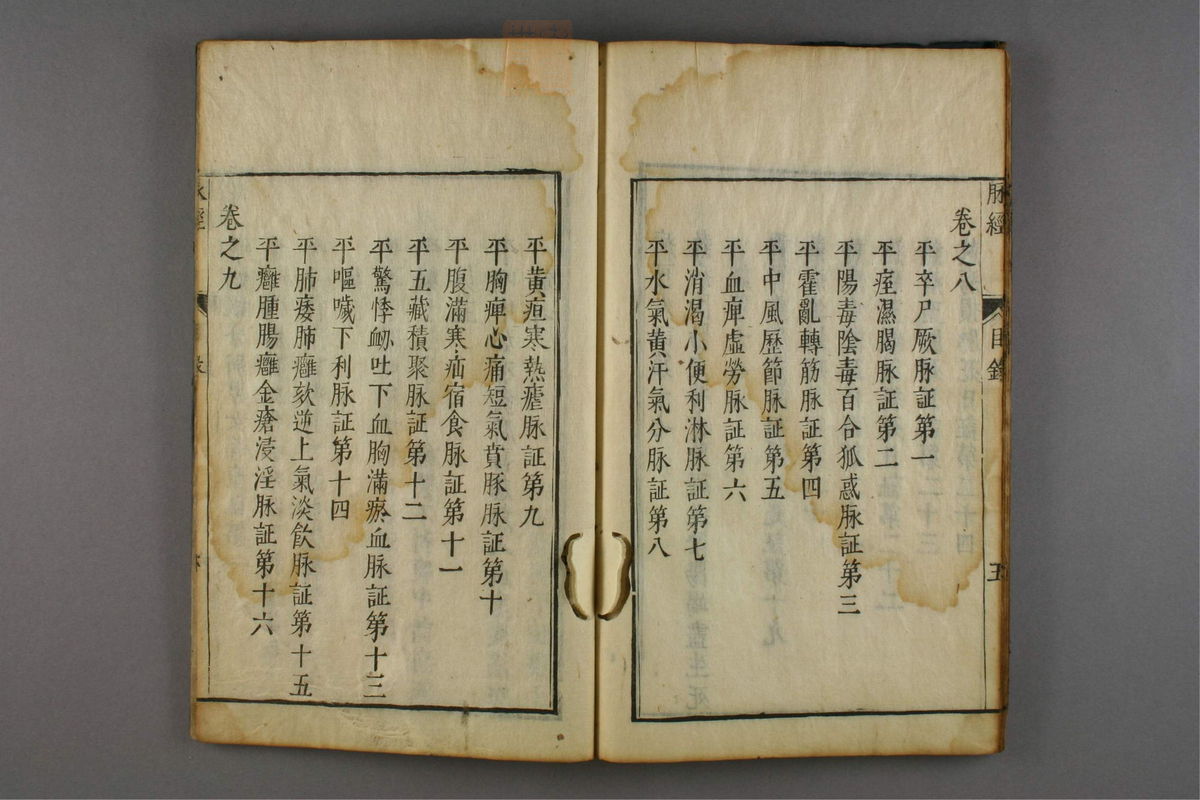 脉經
目錄
五
卷之八
平卒尸厥脉証第一
平痓濕暍脉証第二
平陽毒陰毒百合狐惑脉証第三
平霍亂轉筋脉証第四
平中風歷節脉証第五
平血痺虛勞脉証第六
平消渴小便利淋脉証第七
平水氣黃汗氣分脉証第八
平黃疸寒熱瘧脉証第九
平胸痺心痛短氣賁豚脉証第十
平腹滿寒疝宿食脉証第十一
平五藏積聚脉証第十二
平驚悸衂吐下血胸滿瘀血脉証第十三
平嘔噦下利脉証第十四
平肺痿肺癰欬逆上氣淡飲脉証第十五
平癰腫腸癰金瘡浸淫脉証第十六
卷之九